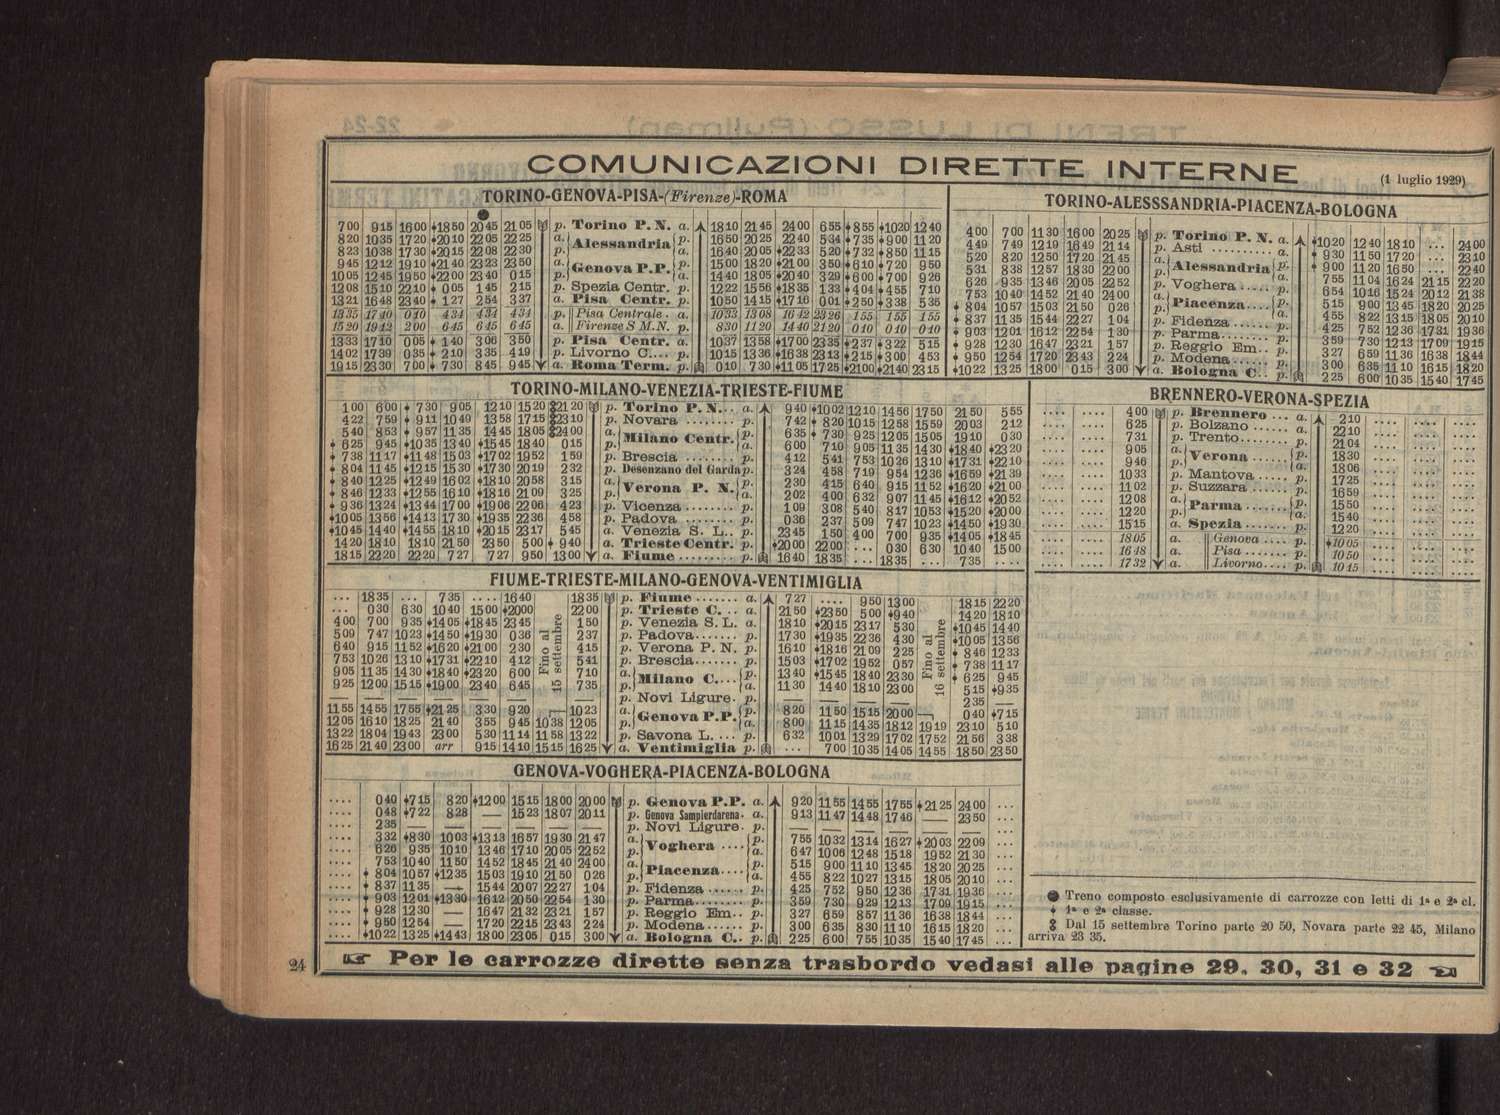 COMUNICAZIONI DIRETTE INTERNE
(1 luglio 1929)
TORINO-GENOVA-PISA-(Firenze)-ROMA
7 00 9 15 16 00 ♦18 50 20 45 21 05 p. Torino P. N. a. 18 10 21 45 24 00 6 55 ♦8 55 ♦10 20 12 40
8 20 10 35 17 20 ♦20 10 22 05 22 25 a. Alessandria p. 16 50 20 25 22 40 5 34 ♦7 35 ♦9 00 11 20
8 23 10 38 17 30 ♦20 15 22 08 22 30 p. a. 16 40 20 05 ♦22 33 5 20 ♦7 32 ♦8 50 11 15
9 45 12 12 19 10 ♦21 40 23 23 23 50 a. Genova P. P. p. 15 00 18 20 ♦21 00 3 50 ♦6 10 ♦7 20 9 50
10 05 12 45 19 50 ♦22 00 23 40 0 15 p. a. 14 40 18 05 ♦20 40 3 29 ♦6 00 ♦7 00 9 26
12 08 15 10 22 10 ♦0 05 1 45 2 15 p. Spezia Centr. p. 12 22 15 56 ♦18 35 1 33 ♦4 04 ♦4 55 7 10
13 21 16 48 23 40 ♦1 27 2 54 3 37 a. Pisa Centr. p. 10 50 14 15 ♦17 16 0 01 ♦2 50 ♦3 38 5 35
13 35 17 40 0 10 4 34 4 34 4 34 p. Pisa Centrale. a. 10 33 13 08 16 42 23 26 1 55 1 55 1 55
15 20 19 12 2 00 6 45 6 45 6 45 a. Firenze S M. N. p. 8 30 11 20 14 40 21 20 0 10 0 10 0 10
13 33 17 10 0 05 ♦1 40 3 06 3 50 p. Pisa Centr. a. 10 37 13 58 ♦17 00 23 35 ♦2 37 ♦3 22 5 15
14 02 17 39 0 35 ♦2 10 3 35 4 19 p. Livorno C.... p. 10 15 13 36 ♦16 38 23 13 ♦2 15 ♦3 00 4 53
19 15 23 30 7 00 ♦7 30 8 45 9 45 a. Roma Term. p. 0 10 7 30 ♦11 05 17 25 ♦21 00 ♦21 40 23 15
TORINO-ALESSSANDRIA-PIACENZA-BOLOGNA
4 00 7 00 11 30 16 00 20 25 p. Torino P. N. a. ♦10 20 12 40 18 10 ... 24 00
4 49 7 49 12 19 16 49 21 14 p. Asti .......... p. ♦9 30 11 50 17 20 ... 23 10
5 20 8 20 12 50 17 20 21 45 a. Alessandria p. ♦9 00 11 20 16 50 ... 22 40
5 31 8 38 12 57 18 30 22 00 p. a. 7 55 11 04 16 24 21 15 22 20
6 26 9 35 13 46 20 05 22 52 p. Voghera ..... p. 6 54 10 16 15 24 20 12 21 38
7 53 10 40 14 52 21 40 24 00 a. Piacenza.... p. 5 15 9 00 13 45 18 20 20 25
♦8 04 10 57 15 03 21 50 0 26 p. a. 4 55 8 22 13 15 18 05 20 10
♦8 37 11 35 15 44 22 27 1 04 p. Fidenza ...... p. 4 25 7 52 12 36 17 31 19 36
♦9 03 12 01 16 12 22 54 1 30 p. Parma........ p. 3 59 7 30 12 13 17 09 19 15
♦9 28 12 30 16 47 23 21 1 57 p. Reggio Em.. p. 3 27 6 59 11 36 16 38 18 44
♦9 50 12 54 17 20 23 43 2 24 p. Modena...... p. 3 00 6 35 11 10 16 15 18 20
♦10 22 13 25 18 00 0 15 3 00 a. Bologna C.. p. 2 25 6 00 10 35 15 40 17 45
TORINO-MILANO-VENEZIA-TRIESTE-FIUME
1 00 6 00 ♦7 30 9 05 12 10 15 20 21 20 p. Torino P. N... a. 9 40 ♦10 02 12 10 14 56 17 50 21 50 5 55
4 22 7 59 ♦9 11 10 49 13 58 17 15 23 10 p. Novara ........ p. 7 42 ♦8 20 10 15 12 58 15 59 20 03 2 12
5 40 8 53 ♦9 57 11 35 14 45 18 05 24 00 a. Milano Centr. p. 6 35 ♦7 30 9 25 12 05 15 05 19 10 0 30
♦6 25 9 45 ♦10 35 13 40 ♦15 45 18 40 0 15 p. a. 6 00 7 10 9 05 11 35 14 30 ♦18 40 ♦23 20
♦7 38 11 17 ♦11 48 15 03 ♦17 02 19 52 1 59 p. Brescia ....... p. 4 12 5 41 7 53 10 26 13 10 ♦17 31 ♦22 10
♦8 04 11 45 ♦12 15 15 30 ♦17 30 20 19 2 32 p. Desenzano del Garda p. 3 24 4 58 7 19 9 54 12 36 ♦16 59 ♦21 39
♦8 40 12 25 ♦12 49 16 02 ♦18 10 20 58 3 15 a. Verona P. N. p. 2 30 4 15 6 40 9 15 11 52 ♦16 20 ♦21 00
♦8 46 12 33 ♦12 55 16 10 ♦18 16 21 09 3 25 p. a. 2 02 4 00 6 32 9 07 11 45 ♦16 12 ♦20 52
♦9 36 13 24 ♦13 44 17 00 ♦19 06 22 06 4 23 p. Vicenza ........ p. 1 09 3 08 5 40 8 17 10 53 ♦15 20 ♦20 00
♦10 05 13 56 ♦14 13 17 30 ♦19 35 22 36 4 58 p. Padova ........ p. 0 36 2 37 5 09 7 47 10 23 ♦14 50 ♦19 30
♦10 45 14 40 ♦14 55 18 10 ♦20 15 23 17 5 45 a. Venezia S. L.. p. 23 45 1 50 4 00 7 00 9 35 ♦14 05 ♦18 45
14 20 18 10 18 10 21 50 23 50 5 00 ♦9 40 a. Trieste Centr. p. ♦20 00 22 00 ... 0 30 6 30 10 40 15 00
18 15 22 20 22 20 7 27 7 27 9 50 13 00 a. Fiume ........ p. 16 40 18 35 ... 18 35 ... 7 35 ....
BRENNERO-VERONA-SPEZIA
.... .... 4 00 p. Brennero ... a. 2 10 .... .... .... ....
.... .... 6 25 p. Bolzano ...... a. 22 10 .... .... .... ....
.... .... 7 31 p. Trento........ p. 21 04 .... .... .... ....
.... .... 9 05 a. Verona .... p. 18 30 .... .... .... ....
.... .... 9 46 p. a. 18 06 .... .... .... ....
.... .... 10 33 p. Mantova ..... p. 17 25 .... .... .... ....
.... .... 11 02 p. Suzzara ...... p. 16 59 .... .... .... ....
.... .... 12 08 a. Parma ..... p. 15 50 .... .... .... ....
.... .... 12 20 p. a. 15 40 .... .... .... ....
.... .... 15 15 a. Spezia ....... p. 12 20 .... .... .... ....
.... .... 18 05 a. Genova .... p. ♦10 05 .... .... .... ....
.... .... 16 48 a. Pisa ........ p. 10 50 .... .... .... ....
.... .... 17 32 a. Livorno.... p. 10 15 .... .... .... ....
FIUME-TRIESTE-MILANO-GENOVA-VENTIMIGLIA
... 18 35 ... 7 35 .... 16 40 18 35 p. Fiume ....... a. 7 27 .... 9 50 13 00 18 15 22 20
... 0 30 6 30 10 40 15 00 ♦20 00 22 00 p. Trieste C. .. a. 21 50 ♦23 50 5 00 ♦9 40 14 20 18 10
4 00 7 00 9 35 ♦14 05 ♦18 45 23 45 1 50 p. Venezia S. L. a. 18 10 ♦20 15 23 17 5 30 ♦10 45 14 40
5 09 7 47 10 23 ♦14 50 ♦19 30 0 36 2 37 p. Padova....... p. 17 30 ♦19 35 22 36 4 30 ♦10 05 13 56
6 40 9 15 11 52 ♦16 20 ♦21 00 2 30 4 15 p. Verona P. N. p. 16 10 ♦18 16 21 09 2 25 ♦8 46 12 33
7 53 10 26 13 10 ♦17 31 ♦22 10 4 12 5 41 p. Brescia....... p. 15 03 ♦17 02 19 52 0 57 ♦7 38 11 17
9 05 11 35 14 30 ♦18 40 ♦23 20 6 00 7 10 a. Milano C.... p. 13 40 ♦15 45 18 40 23 30 ♦6 25 9 45
9 25 12 00 15 15 ♦19 00 23 40 6 45 7 35 p. a. 11 30 14 40 18 10 23 00 5 15 ♦9 35
— — — — — — — p. Novi Ligure. p. — — — — 2 35 —
11 55 14 55 17 55 ♦21 25 3 30 9 20 — 10 23 a. Genova P.P. p. 8 20 11 50 15 15 20 00 — 0 40 ♦7 15
12 05 16 10 18 25 21 40 3 55 9 45 10 38 12 05 p. a. 8 00 11 15 14 35 18 12 19 19 23 10 5 10
13 22 18 04 19 43 23 00 5 30 11 14 11 58 13 22 p. Savona L. ... p. 6 32 10 01 13 29 17 02 17 52 21 56 3 38
16 25 21 40 23 00 arr 9 15 14 10 15 15 16 25 a. Ventimiglia p. ... 7 00 10 35 14 05 14 55 18 50 23 50
Fino al
15 settembre
Fino al
16 settembre
GENOVA-VOGHERA-PIACENZA-BOLOGNA
.... 0 40 ♦7 15 8 20 ♦12 00 15 15 18 00 20 00 p. Genova P. P. a. 9 20 11 55 14 55 17 55 ♦21 25 24 00 ...
.... 0 48 ♦7 22 8 28 — 15 23 18 07 20 11 p. Genova Sampierdarena. a. 9 13 11 47 14 48 17 46 — 23 50 ...
.... 2 35 — — — — — — p. Novi Ligure. p. — — — — — — ...
.... 3 32 ♦8 30 10 03 ♦13 13 16 57 19 30 21 47 a. Voghera .... p. 7 55 10 32 13 14 16 27 ♦20 03 22 09 ...
.... 6 26 9 35 10 10 13 46 17 10 20 05 22 52 p. a. 6 47 10 06 12 48 15 18 19 52 21 30 ...
.... 7 53 10 40 11 50 14 52 18 45 21 40 24 00 a. Piacenza.... p. 5 15 9 00 11 10 13 45 18 20 20 25 ...
.... ♦8 04 10 57 ♦12 35 15 03 19 10 21 50 0 26 p. a. 4 55 8 22 10 27 13 15 18 05 20 10 ...
.... ♦8 37 11 35 — 15 44 20 07 22 27 1 04 p. Fidenza ...... p. 4 25 7 52 9 50 12 36 17 31 19 36 ...
.... ♦9 03 12 01 ♦13 30 16 12 20 50 22 54 1 30 p. Parma........ p. 3 59 7 30 9 29 12 13 17 09 19 15 ...
.... ♦9 28 12 30 — 16 47 21 32 23 21 1 57 p. Reggio Em.. p. 3 27 6 59 8 57 11 36 16 38 18 44 ...
.... ♦9 50 12 54 — 17 20 22 15 23 43 2 24 p. Modena ..... p. 3 00 6 35 8 30 11 10 16 15 18 20 ...
.... ♦10 22 13 25 ♦14 43 18 00 23 05 0 15 3 00 a. Bologna C.. p. 2 25 6 00 7 55 10 35 15 40 17 45 ...
● Treno composto esclusivamente di carrozze con letti di 1ª e 2ª cl.
♦ 1ª e 2ª classe.
Dal 15 settembre Torino parte 20 50, Novara parte 22 45, Milano
arriva 23 35.
☞ Per le carrozze dirette senza trasbordo vedasi alle pagine 29, 30, 31 e 32 ☜
24